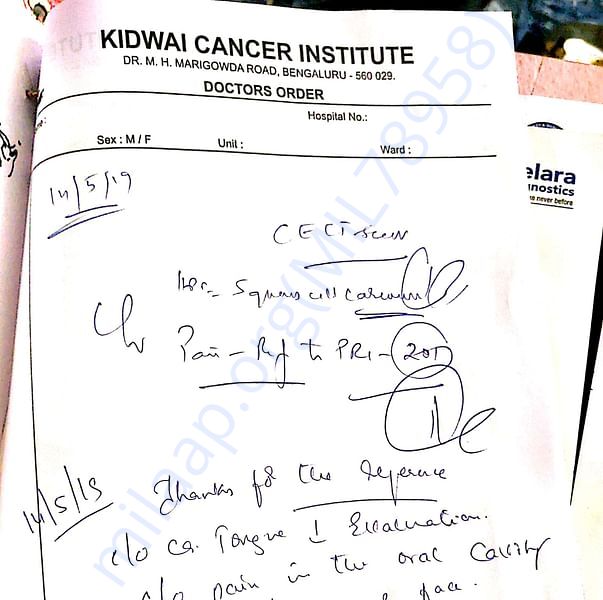 KIDWAI CANCER INSTITUTE
DR. M. H. MARIGOWDA ROAD, BENGALURU - 560 029.
DOCTORS ORDER
Hospital No.:
Sex : M / F Unit : Ward :
14/5/19
CECT Scan
Squamous cell Carcinoma
Pain - Ref to PRI - 201
14/5/19
Thanks for the reference
c/o ca. Tongue Evaluation.
c/o pain in the oral cavity
face.
elara
gnostics
e never before
milaap.org(MIL78958)